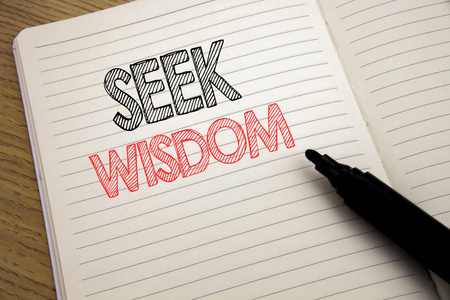 SEEK
WISDOM